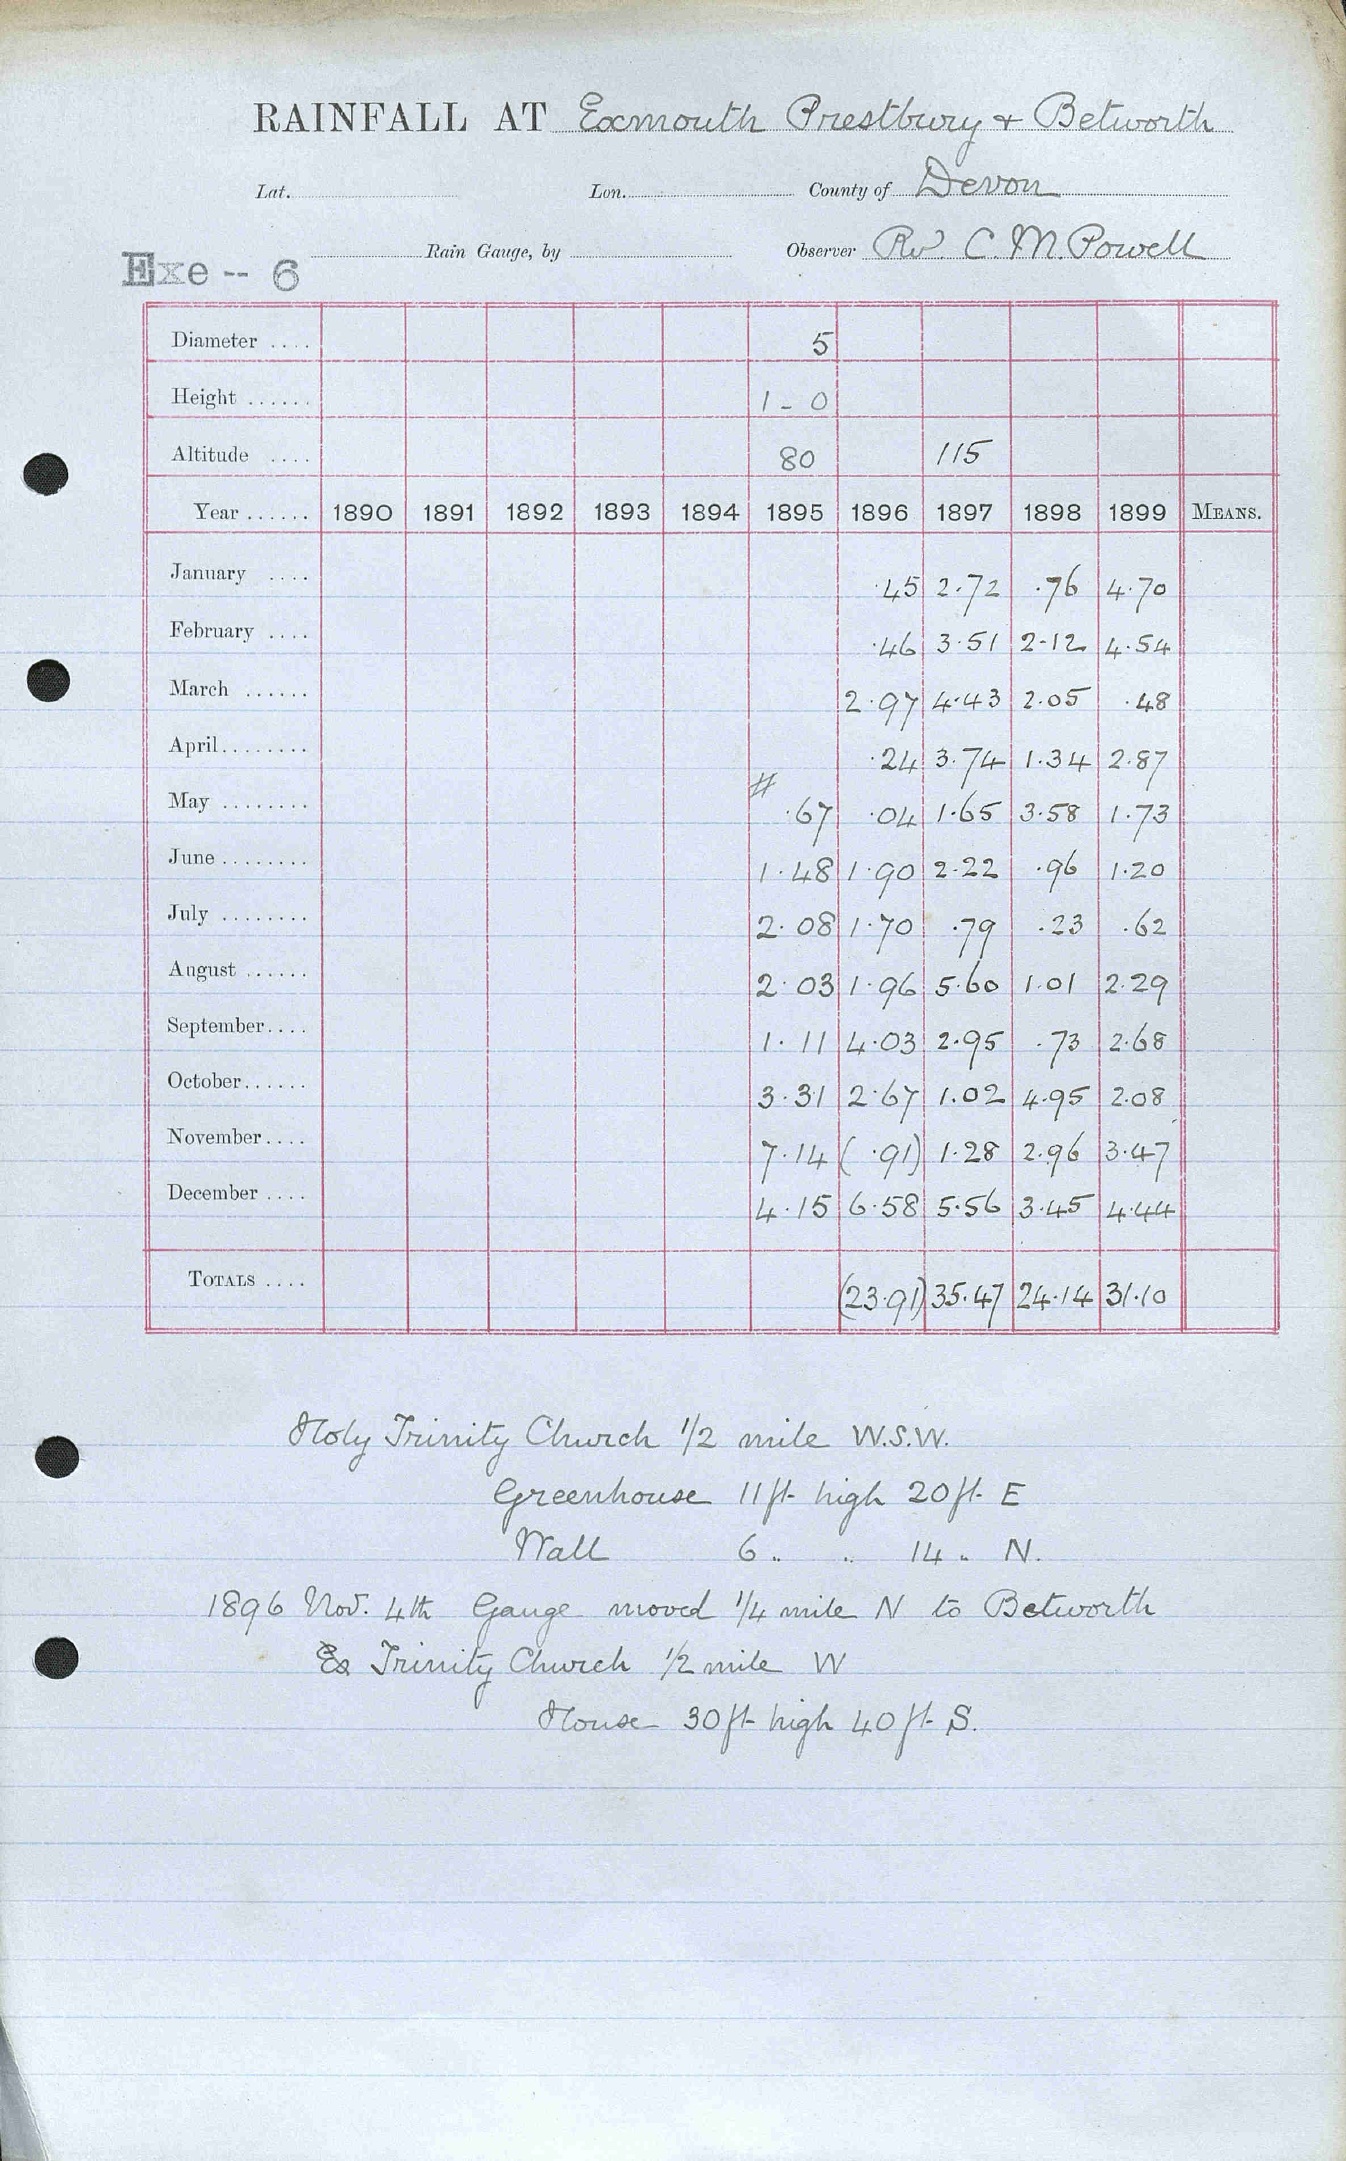 RAINFALL AT Exmouth Prestbury + Betworth
Lat. Lon. County of Devon
Rain Gauge, by Observer Rev. C. M. Powell
Exe -- 6
Diameter .... 5
Height ...... 1 - 0
Altitude .... 80 115
Year ...... 1890 1891 1892 1893 1894 1895 1896 1897 1898 1899 MEANS.
January .... .45 2.72 .76 4.70
February .... .46 3.51 2.12 4.54
March ...... 2.97 4.43 2.05 .48
April........ .24 3.74 1.34 2.87
May ........ # .67 .04 1.65 3.58 1.73
June ........ 1.48 1.90 2.22 .96 1.20
July ........ 2.08 1.70 .79 .23 .62
August ...... 2.03 1.96 5.60 1.01 2.29
September.... 1.11 4.03 2.95 .73 2.68
October...... 3.31 2.67 1.02 4.95 2.08
November.... 7.14 ( .91) 1.28 2.96 3.47
December .... 4.15 6.58 5.56 3.45 4.44
TOTALS .... (23.91) 35.47 24.14 31.10
Holy Trinity Church 1/2 mile W.S.W.
Greenhouse 11 ft. high 20 ft. E
Wall 6 " " 14 " N.
1896 Nov. 4th Gauge moved 1/4 mile N to Betworth
Trinity Church 1/2 mile W
House 30 ft. high 40 ft. S.